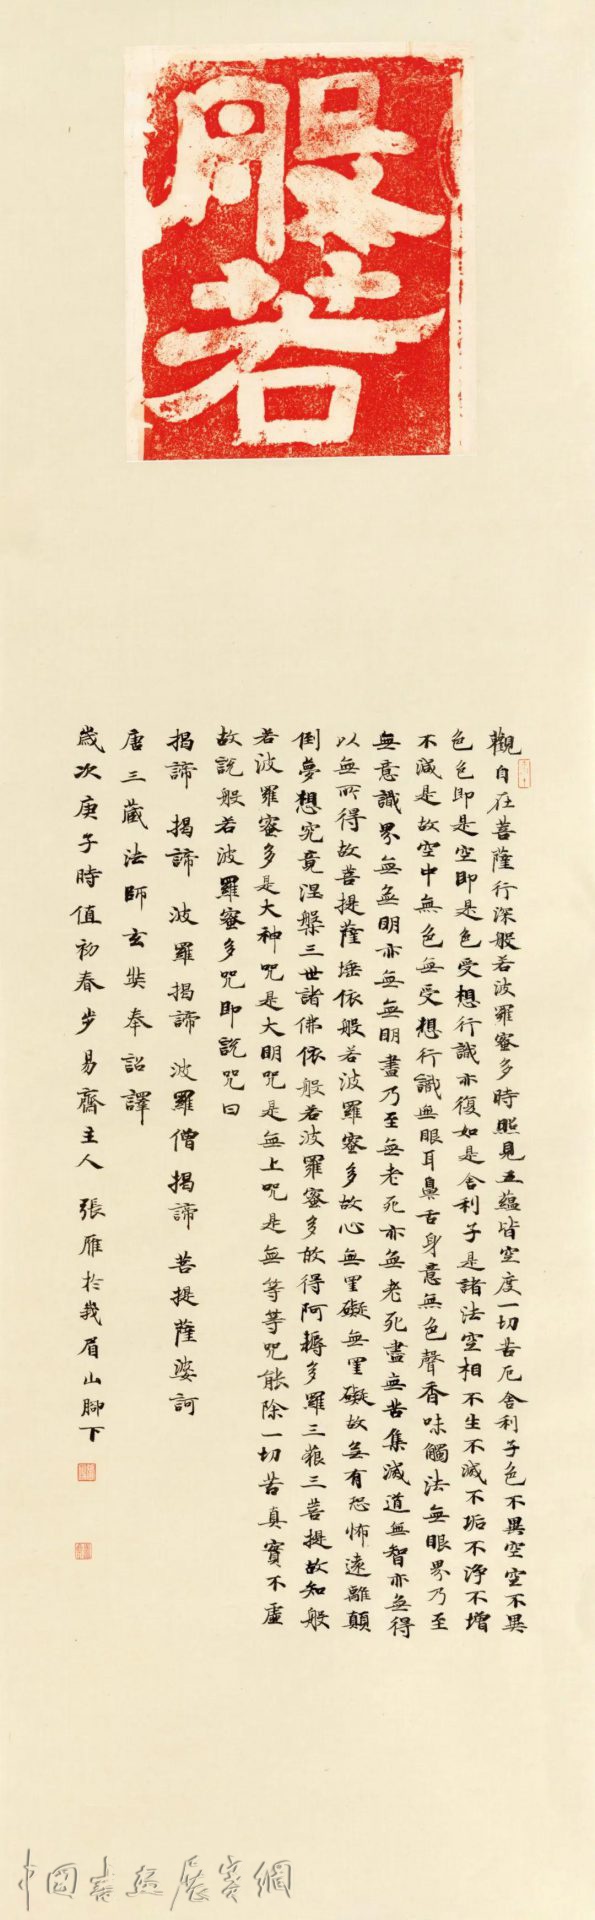 般若
觀自在菩薩行深般若波羅蜜多時照見五蘊皆空度一切苦厄舍利子色不異空空不異
色色即是空空即是色受想行識亦復如是舍利子是諸法空相不生不滅不垢不淨不增
不減是故空中無色無受想行識無眼耳鼻舌身意無色聲香味觸法無眼界乃至
無意識界無無明亦無無明盡乃至無老死亦無老死盡無苦集滅道無智亦無得
以無所得故菩提薩埵依般若波羅蜜多故心無罣礙無罣礙故無有恐怖遠離顛
倒夢想究竟涅槃三世諸佛依般若波羅蜜多故得阿耨多羅三藐三菩提故知般
若波羅蜜多是大神咒是大明咒是無上咒是無等等咒能除一切苦真實不虛
故說般若波羅蜜多咒即說咒曰
揭諦揭諦 波羅揭諦 波羅僧揭諦 菩提薩婆訶
唐三藏法師玄奘奉詔譯
歲次庚子時值初春步易齋主人 張雁於峨眉山腳下
中國書畫展賽網